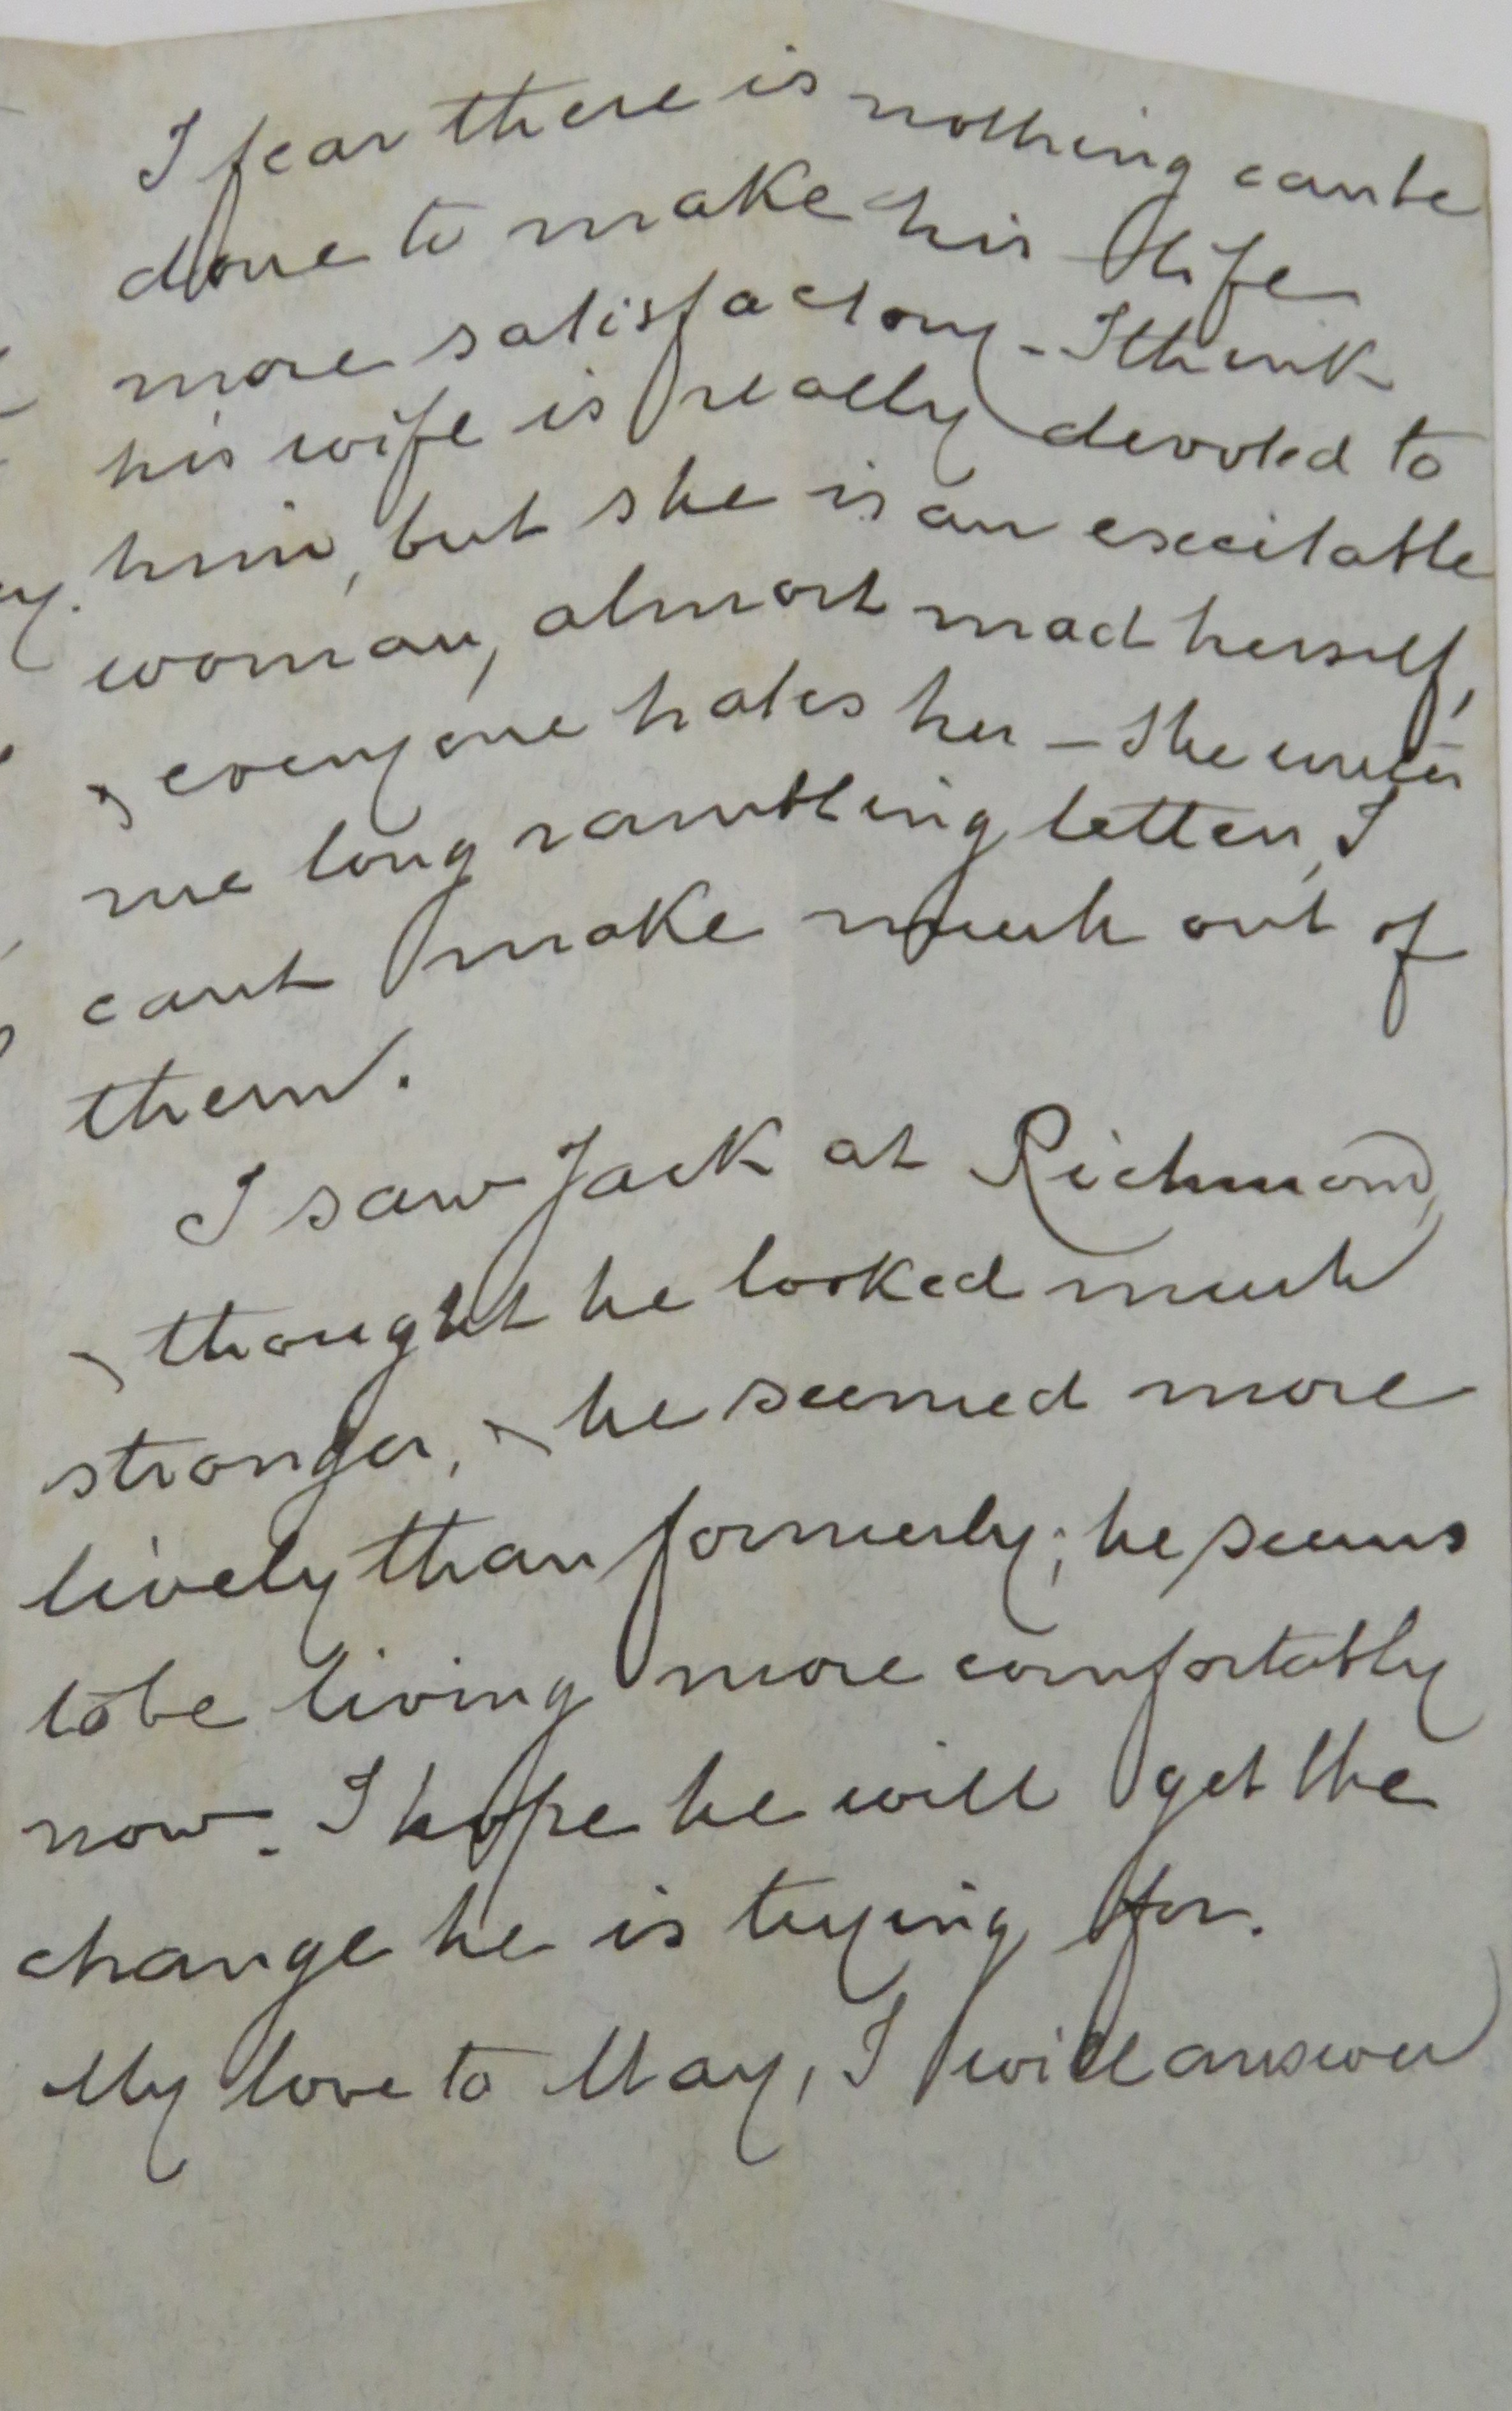 I fear there is nothing can be
done to make his life
more satisfactory - I think
his wife is really devoted to
him, but she is an excitable
woman, almost mad herself,
& everyone hates her - She writes
me long rambling letters, I
cant make much out of
them.
I saw Jack at Richmond,
& thought he looked much
stronger, & he seemed more
lively than formerly; he seems
to be living more comfortably
now. I hope he will get the
change he is trying for.
My love to May, I will answer